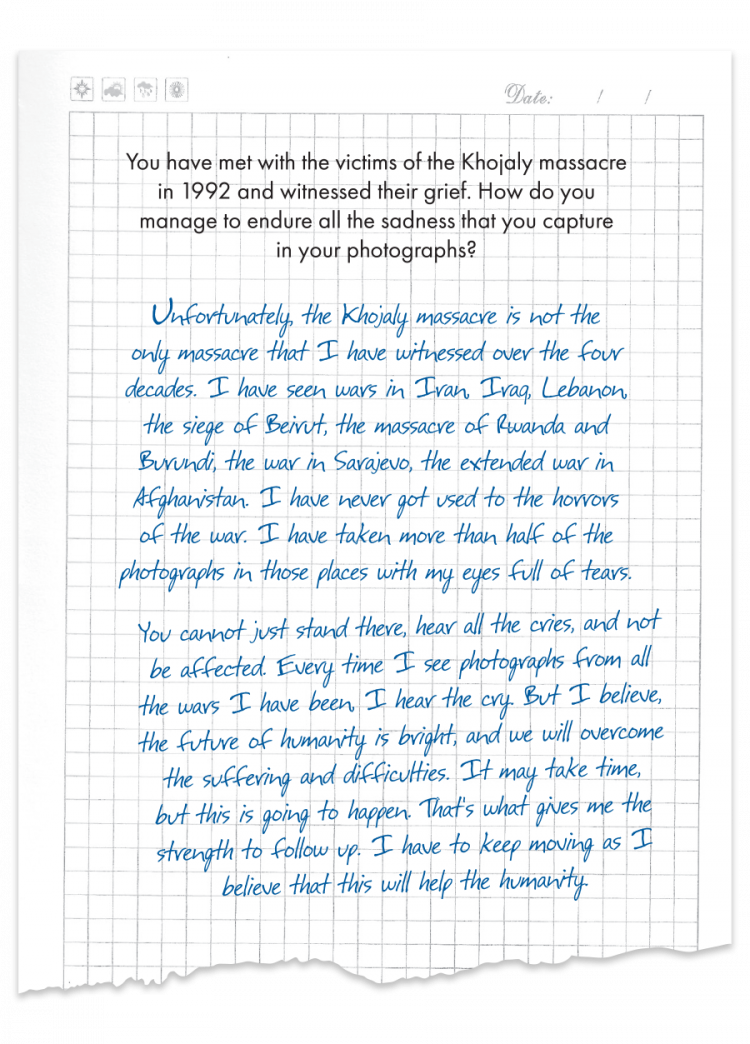 Date: / /
You have met with the victims of the Khojaly massacre
in 1992 and witnessed their grief. How do you
manage to endure all the sadness that you capture
in your photographs?
Unfortunately, the Khojaly massacre is not the
only massacre that I have witnessed over the four
decades. I have seen wars in Iran, Iraq, Lebanon,
the siege of Beirut, the massacre of Rwanda and
Burundi, the war in Sarajevo, the extended war in
Afghanistan. I have never got used to the horrors
of the war. I have taken more than half of the
photographs in those places with my eyes full of tears.
You cannot just stand there, hear all the cries, and not
be affected. Every time I see photographs from all
the wars I have been, I hear the cry. But I believe,
the future of humanity is bright, and we will overcome
the suffering and difficulties. It may take time,
but this is going to happen. That's what gives me the
strength to follow up. I have to keep moving as I
believe that this will help the humanity.